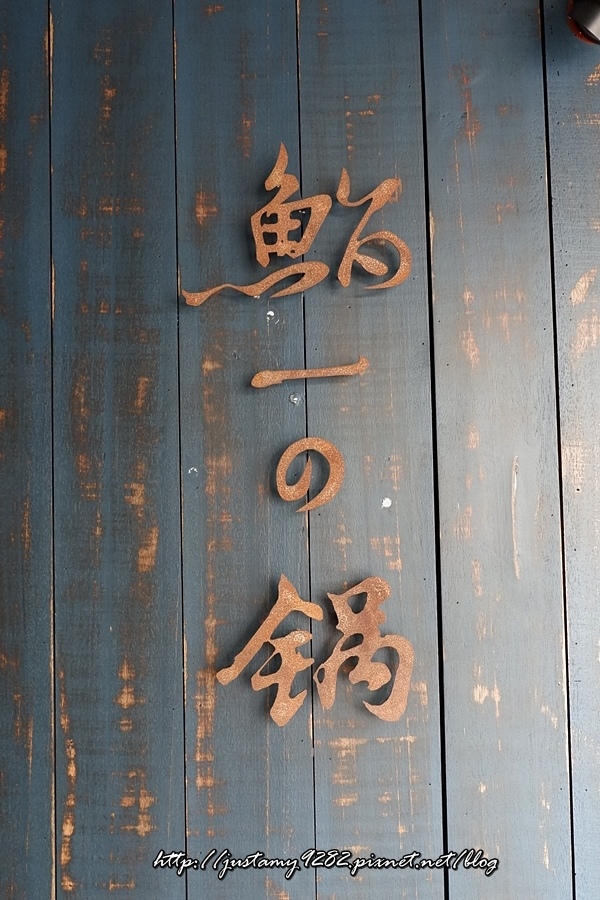 鮨一の鍋
http://justamy9282.pixnet.net/blog